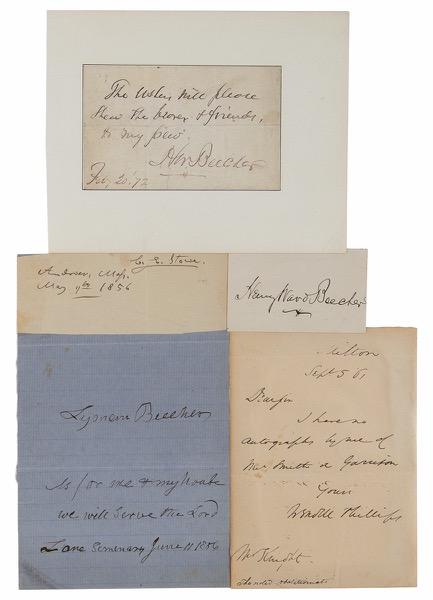 The Ushers will please
show the bearer & friends,
to my pew.
HW Beecher
Feb 20. '72
C. E. Stowe.
Andover, Mass.
May 9th 1856
Henry Ward Beecher
Lyman Beecher
As for me & my house
we will serve the Lord
Lane Seminary June 11 1836
Milton
Sept 5 61
Dear Sir
I have no
autographs by me of
Mr Smith or Garrison
Yours
Wendell Phillips
Mr Knight.